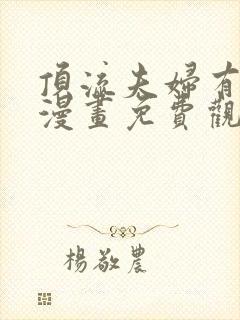 頂流夫婦有
漫畫免費觀
楊敬農